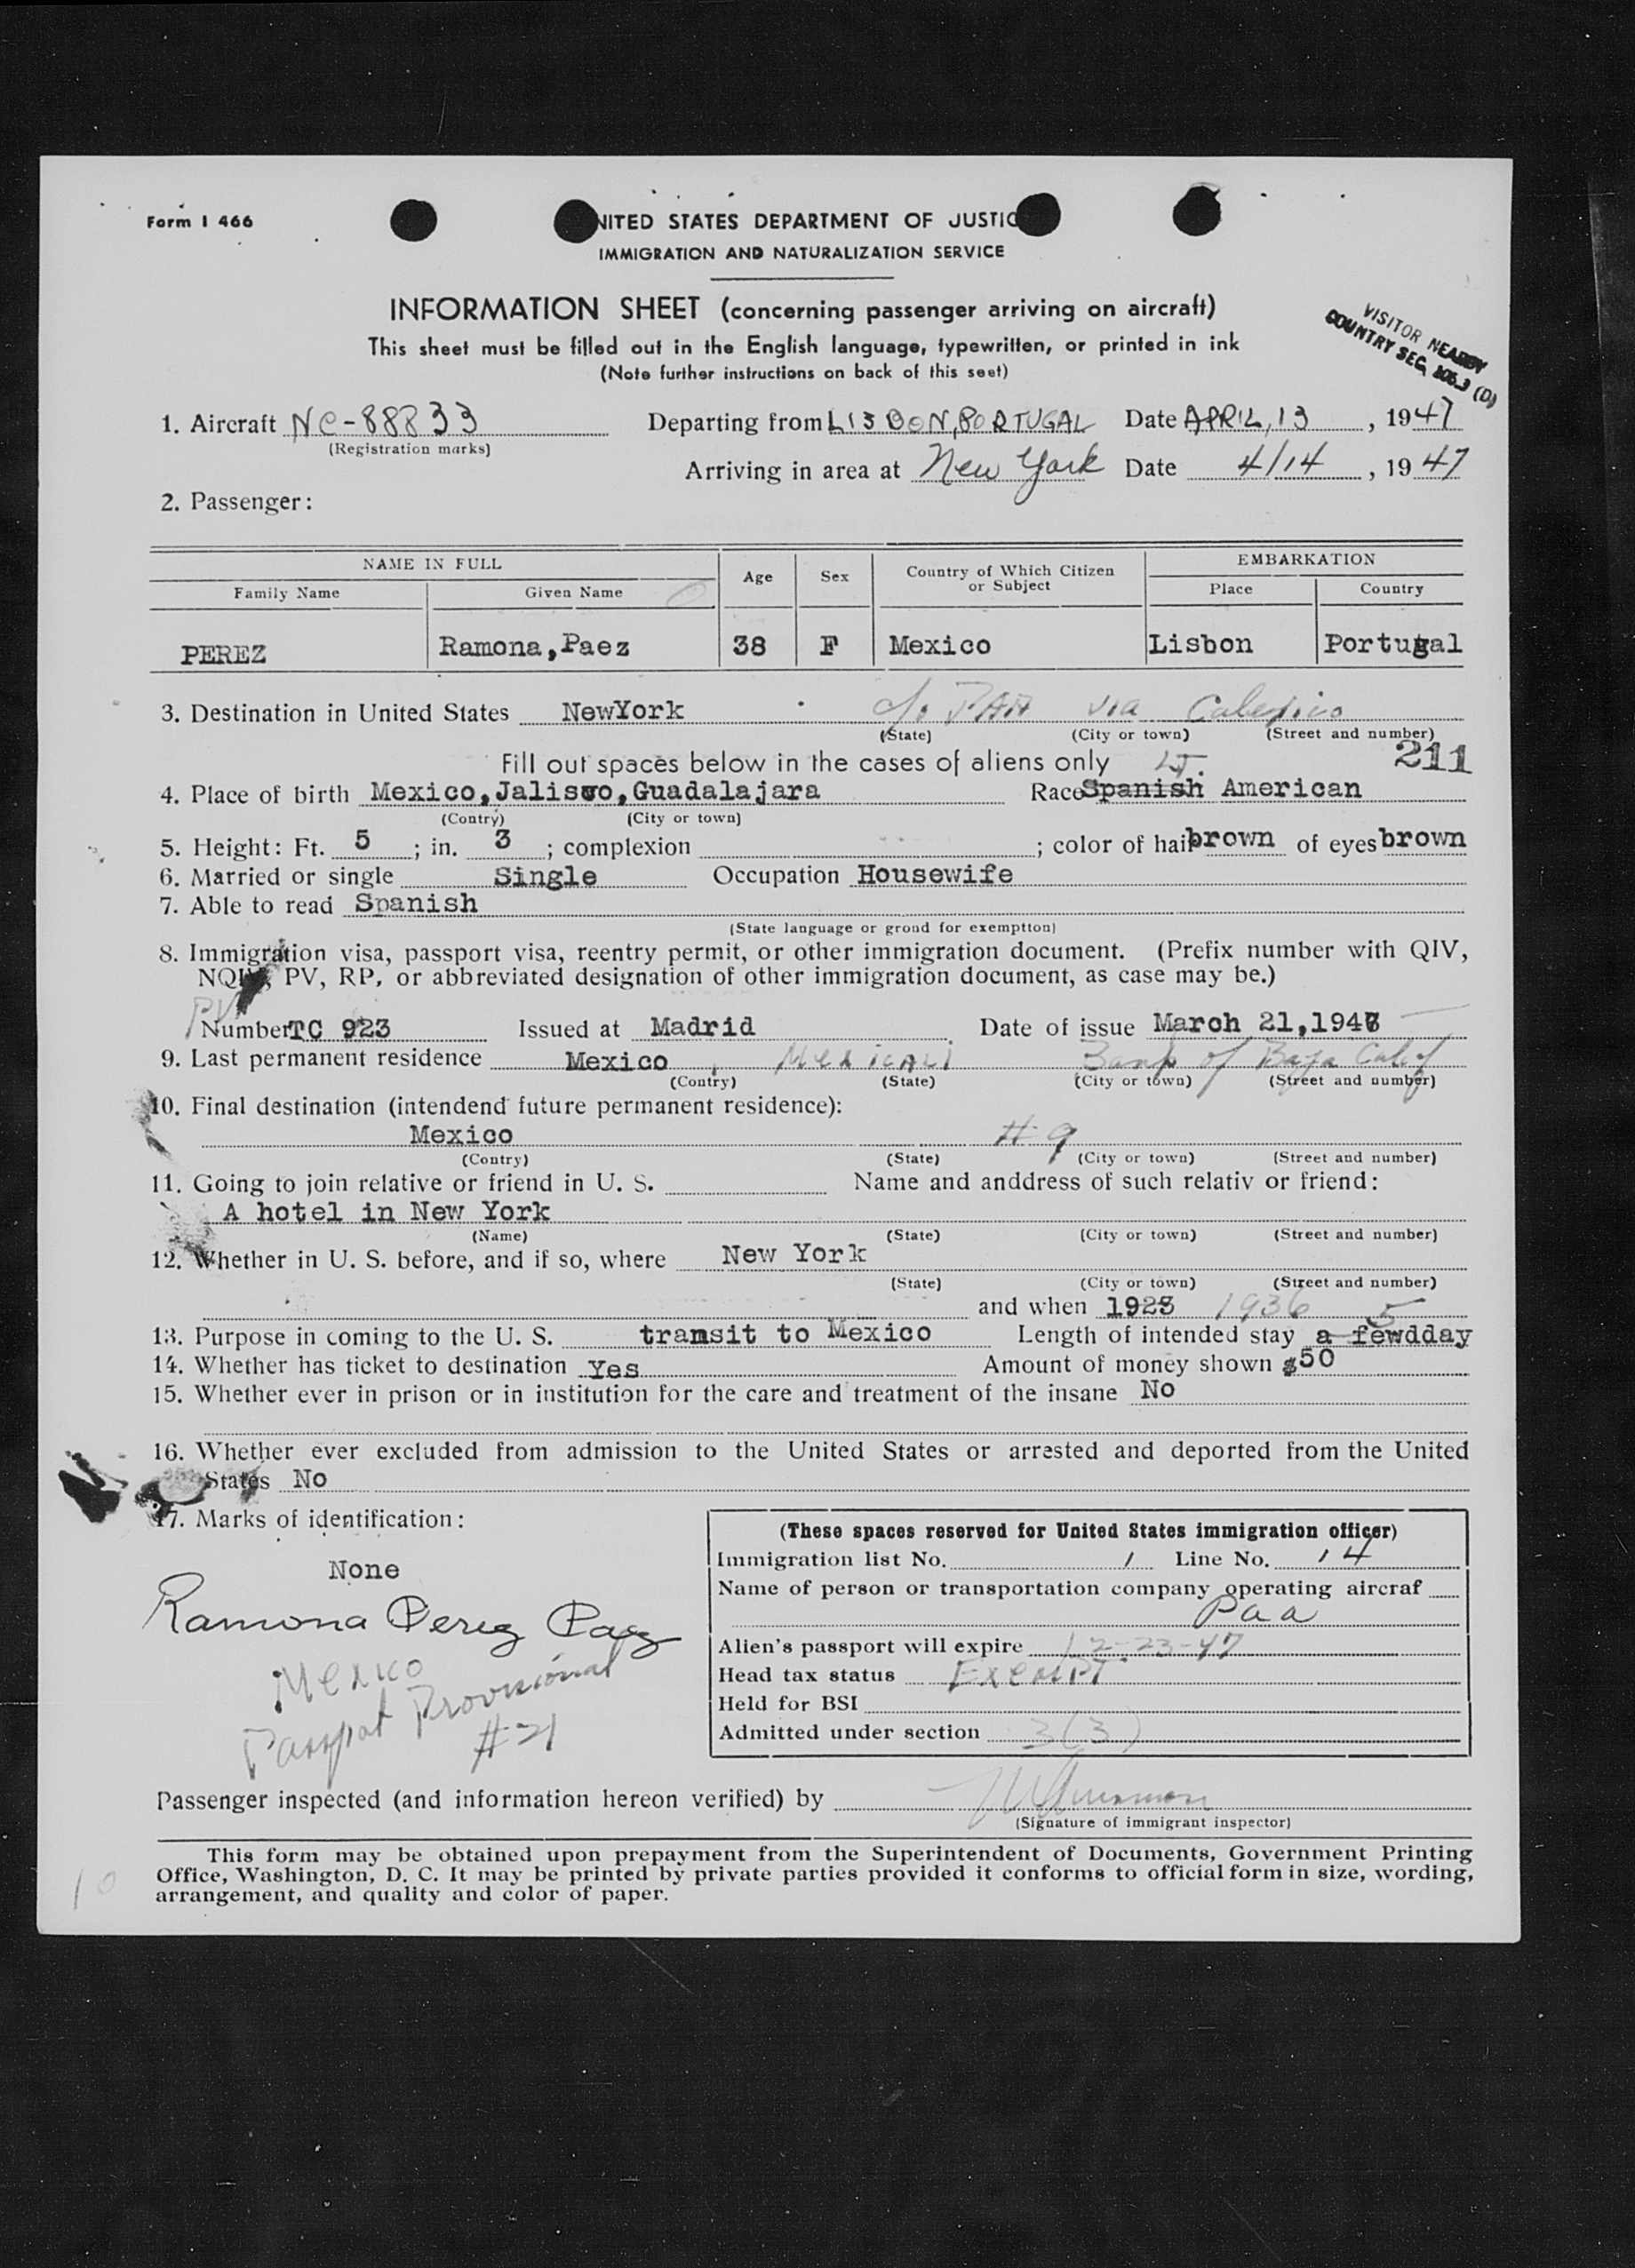 Form I 466
NITED STATES DEPARTMENT OF JUSTIC
IMMIGRATION AND NATURALIZATION SERVICE
INFORMATION SHEET (concerning passenger arriving on aircraft)
This sheet must be filled out in the English language, typewritten, or printed in ink
(Note further instructions on back of this seet)
VISITOR NEARBY
COUNTRY SEC. (D)
1. Aircraft NC-88833 Departing from LISBON, PORTUGAL Date APRIL, 13, 1947
(Registration marks)
Arriving in area at New York Date 4/14, 1947
2. Passenger:
NAME IN FULL Age Sex Country of Which Citizen or Subject EMBARKATION
Family Name Given Name Place Country
PEREZ Ramona, Paez 38 F Mexico Lisbon Portugal
3. Destination in United States NewYork c/o PAA via Calexico
(State) (City or town) (Street and number)
Fill out spaces below in the cases of aliens only 211
4. Place of birth Mexico, Jalisco, Guadalajara Race Spanish American
(Contry) (City or town)
5. Height: Ft. 5; in. 3; complexion ; color of hair brown of eyes brown
6. Married or single Single Occupation Housewife
7. Able to read Spanish
(State language or grond for exemptton)
8. Immigration visa, passport visa, reentry permit, or other immigration document. (Prefix number with QIV,
NQIV, PV, RP, or abbreviated designation of other immigration document, as case may be.)
PV
Number TC 923 Issued at Madrid Date of issue March 21, 1947
9. Last permanent residence Mexico, Mexicali Bank of Baja Calif
(Contry) (State) (City or town) (Street and number)
10. Final destination (intendend future permanent residence):
Mexico #9
(Contry) (State) (City or town) (Street and number)
11. Going to join relative or friend in U. S. Name and anddress of such relativ or friend:
A hotel in New York
(Name) (State) (City or town) (Street and number)
12. Whether in U. S. before, and if so, where New York
(State) (City or town) (Street and number)
and when 1928 1936 5
13. Purpose in coming to the U. S. transit to Mexico Length of intended stay a fewdday
14. Whether has ticket to destination Yes Amount of money shown $50
15. Whether ever in prison or in institution for the care and treatment of the insane No
16. Whether ever excluded from admission to the United States or arrested and deported from the United
States No
17. Marks of identification:
None
Ramona Perez Paez
Mexico
Passport Provisional
#21
(These spaces reserved for United States immigration officer)
Immigration list No. 1 Line No. 14
Name of person or transportation company operating aircraf
Paa
Alien's passport will expire 12-23-47
Head tax status Exempt
Held for BSI
Admitted under section 3(3)
Passenger inspected (and information hereon verified) by
(Signature of immigrant inspector)
This form may be obtained upon prepayment from the Superintendent of Documents, Government Printing
Office, Washington, D. C. It may be printed by private parties provided it conforms to official form in size, wording,
arrangement, and quality and color of paper.
10